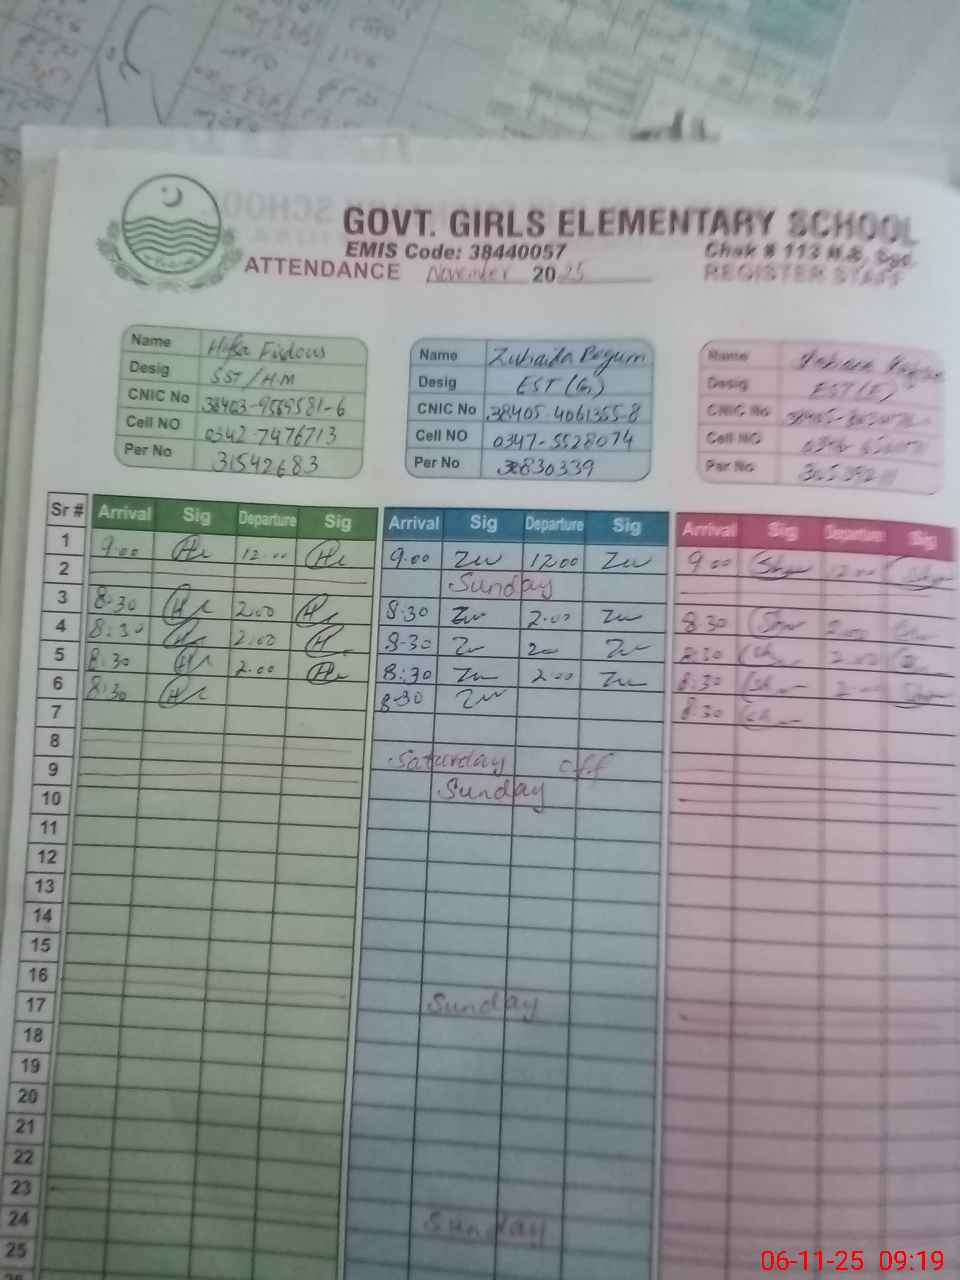 GOVT. GIRLS ELEMENTARY SCHOOL
EMIS Code: 38440057 Chak # 113 N.B, Sgd.
ATTENDANCE November 2025 REGISTER STAFF
Name Hifsa Firdous
Desig SST/H.M
CNIC No 38403-9569581-6
Cell NO 0342-7476713
Per No 31542683
Name Zubaida Begum
Desig EST (G)
CNIC No 38405-4061355-8
Cell NO 0347-5528074
Per No 30830339
Name
Desig EST(E)
CNIC No
Cell NO
Per No
Sr # Arrival Sig Departure Sig Arrival Sig Departure Sig Arrival Sig Departure Sig
1 9:00 12:00 9.00 Zu 1200 Zu 9 00 12.00
2 Sunday
3 8:30 2:00 8:30 Zu 2.00 Zu 8.30 2.00
4 8:30 2:00 8-30 Zu 200 Zu 8:30 2.00
5 8:30 2:00 8:30 Zu 2:00 Zu 8:30 2.00
6 8:30 8:30 Zu 8:30
7
8 Saturday off
9 Sunday
10
11
12
13
14
15
16 Sunday
17
18
19
20
21
22
23 Sunday
24
25
06-11-25 09:19